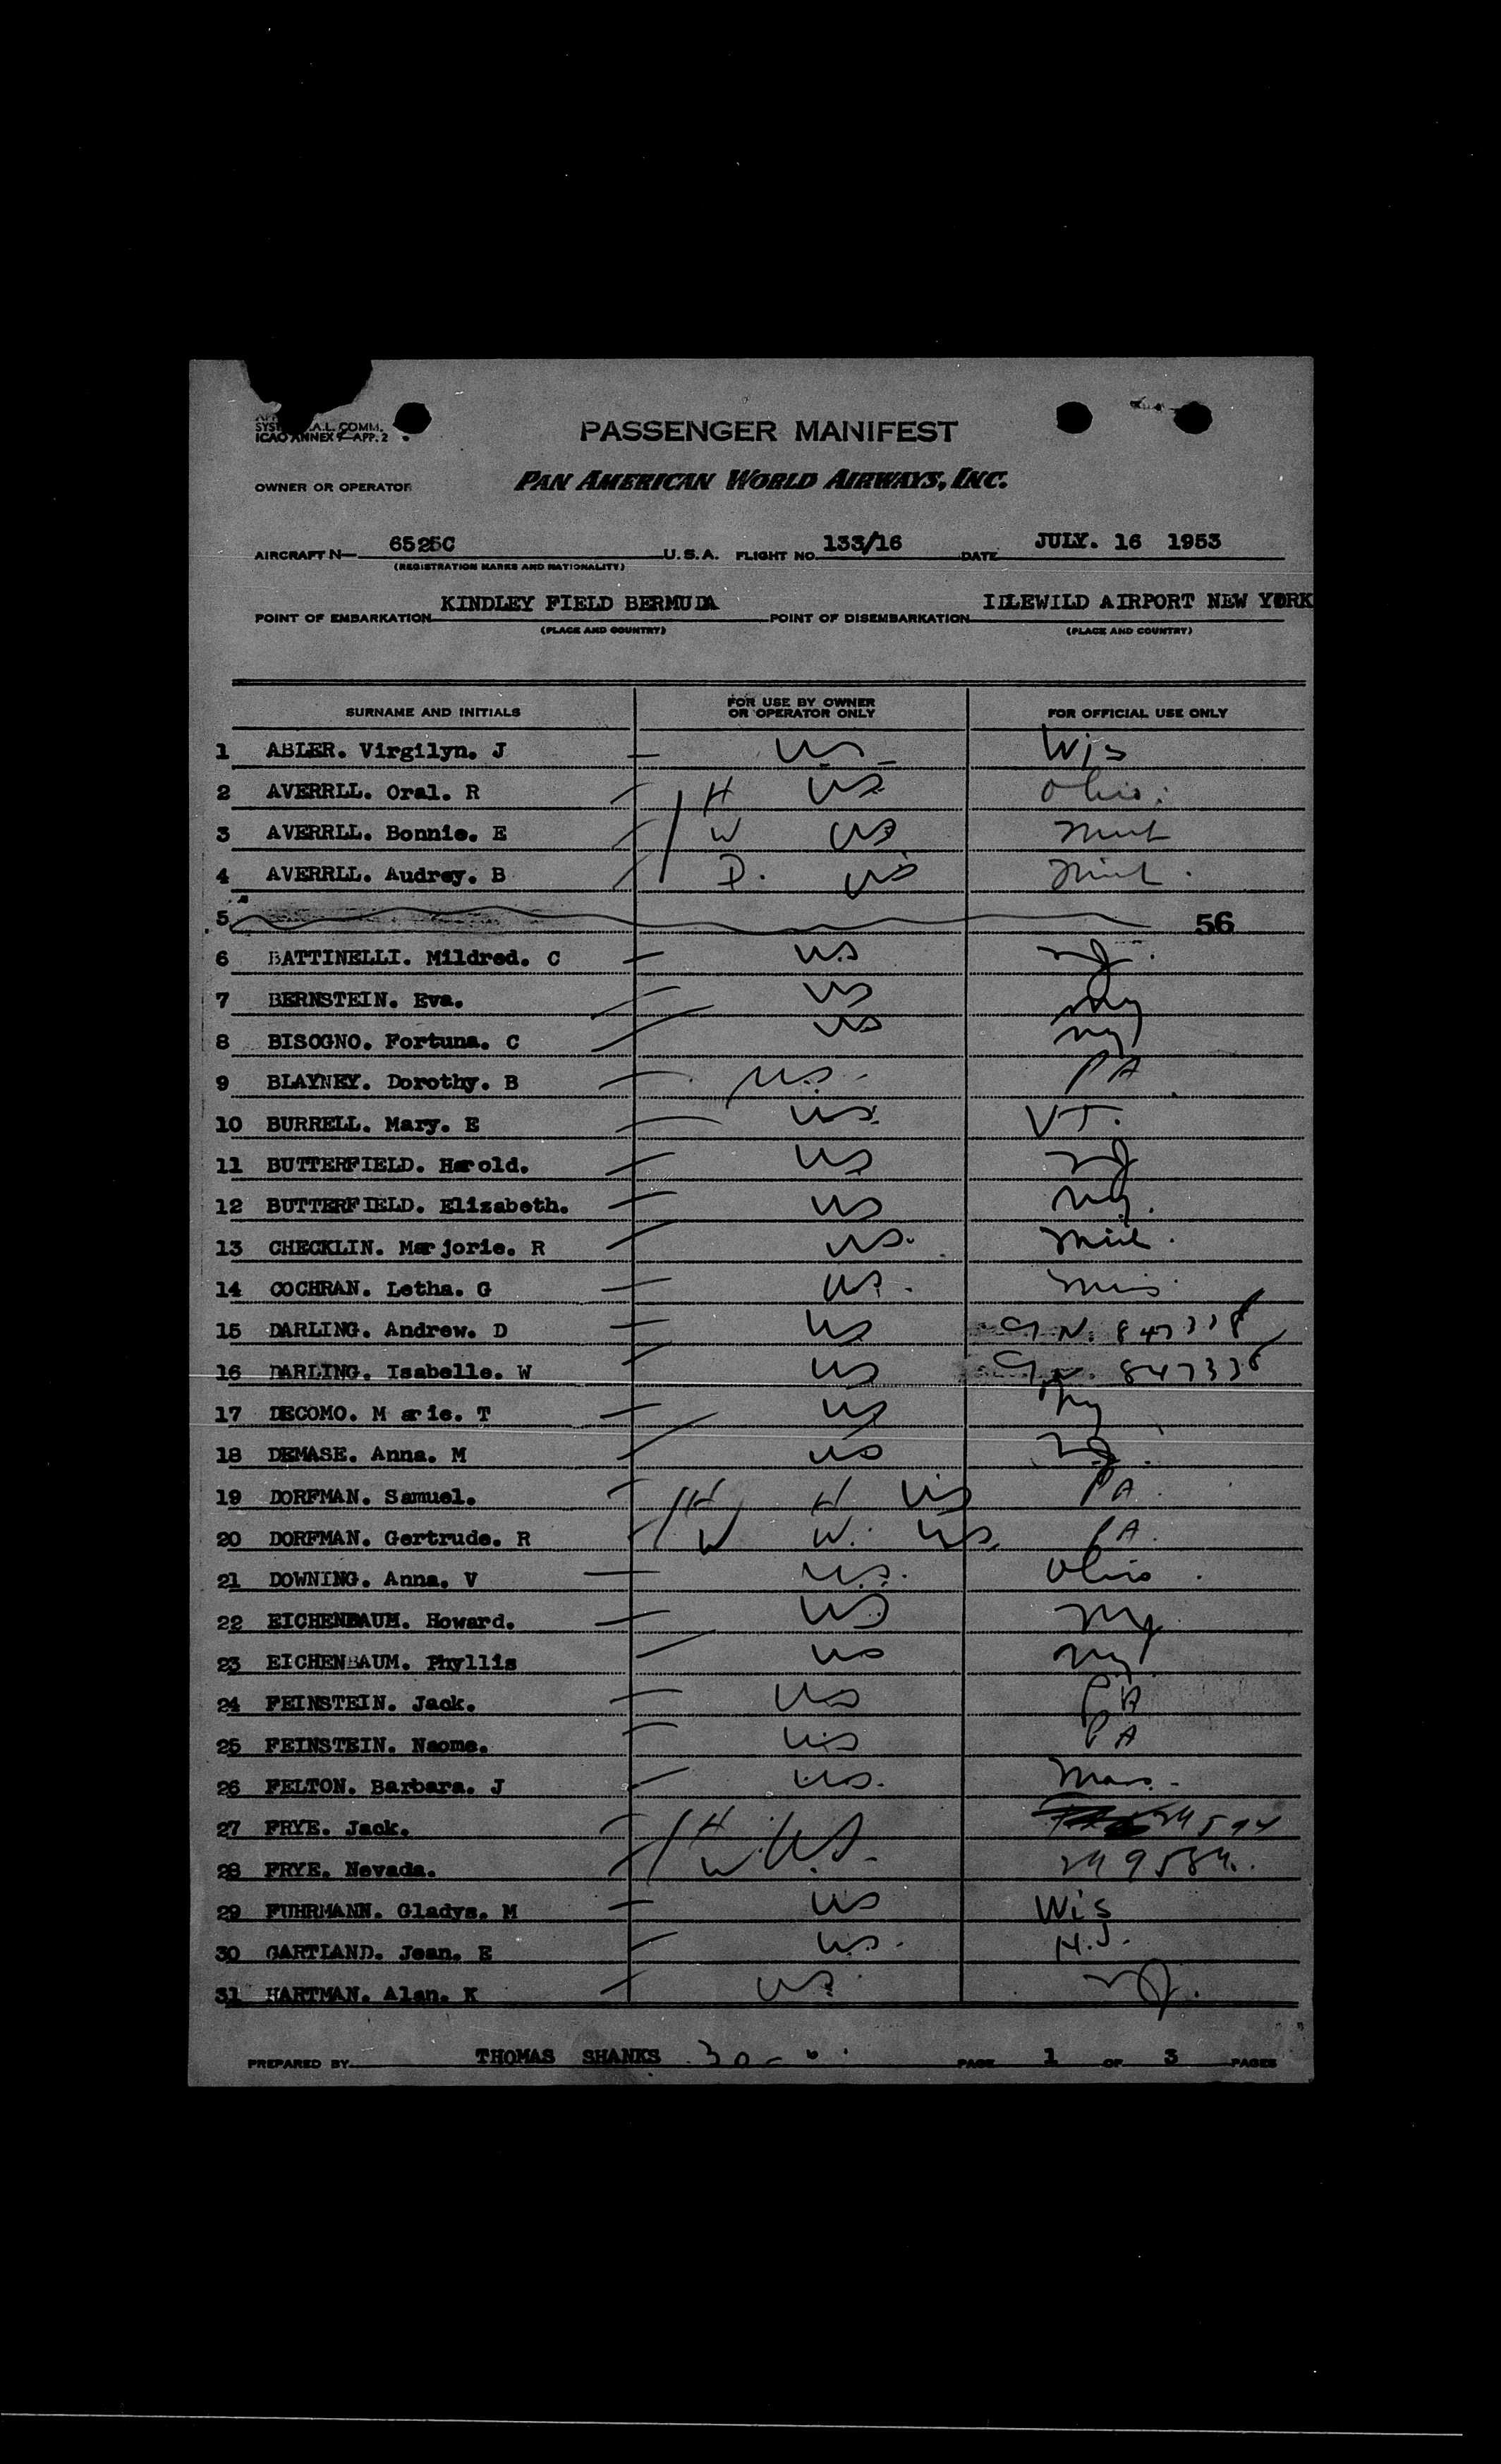 SYST A.L. COMM.
ICAO ANNEX APP. 2
PASSENGER MANIFEST
OWNER OR OPERATOR PAN AMERICAN WORLD AIRWAYS, INC.
AIRCRAFT N— 6525C U.S.A. FLIGHT NO. 133/16 DATE JULY. 16 1953
(REGISTRATION MARKS AND NATIONALITY)
POINT OF EMBARKATION KINDLEY FIELD BERMUDA POINT OF DISEMBARKATION IDLEWILD AIRPORT NEW YORK
(PLACE AND COUNTRY) (PLACE AND COUNTRY)
SURNAME AND INITIALS FOR USE BY OWNER OR OPERATOR ONLY FOR OFFICIAL USE ONLY
1 ABLER. Virgilyn. J US Wis
2 AVERRLL. Oral. R H US Ohio.
3 AVERRLL. Bonnie. E W US
4 AVERRLL. Audrey. B D. US
5 56
6 BATTINELLI. Mildred. C US NJ.
7 BERNSTEIN. Eva. US NY
8 BISOGNO. Fortuna. C US NY
9 BLAYNEY. Dorothy. B US PA
10 BURRELL. Mary. E US. VT.
11 BUTTERFIELD. Harold. US NJ
12 BUTTERFIELD. Elizabeth. US
13 CHECKLIN. Marjorie. R US.
14 COCHRAN. Letha. G US.
15 DARLING. Andrew. D US
16 DARLING. Isabelle. W US
17 DECOMO. Marie. T US NY
18 DEMASE. Anna. M US NJ.
19 DORFMAN. Samuel. H H US PA.
20 DORFMAN. Gertrude. R W W. US PA.
21 DOWNING. Anna. V U.S. Ohio.
22 EICHENBAUM. Howard. US NY
23 EICHENBAUM. Phyllis US NY
24 FEINSTEIN. Jack. US PA
25 FEINSTEIN. Naome. US PA
26 FELTON. Barbara. J US. Mass.
27 FRYE. Jack. H
28 FRYE. Nevada. W U.S.
29 FUHRMANN. Gladys. M US Wis
30 GARTLAND. Jean. E U.S. N.J.
31 HARTMAN. Alan. K US. NJ.
PREPARED BY THOMAS SHANKS 30 PAGE 1 OF 3 PAGES